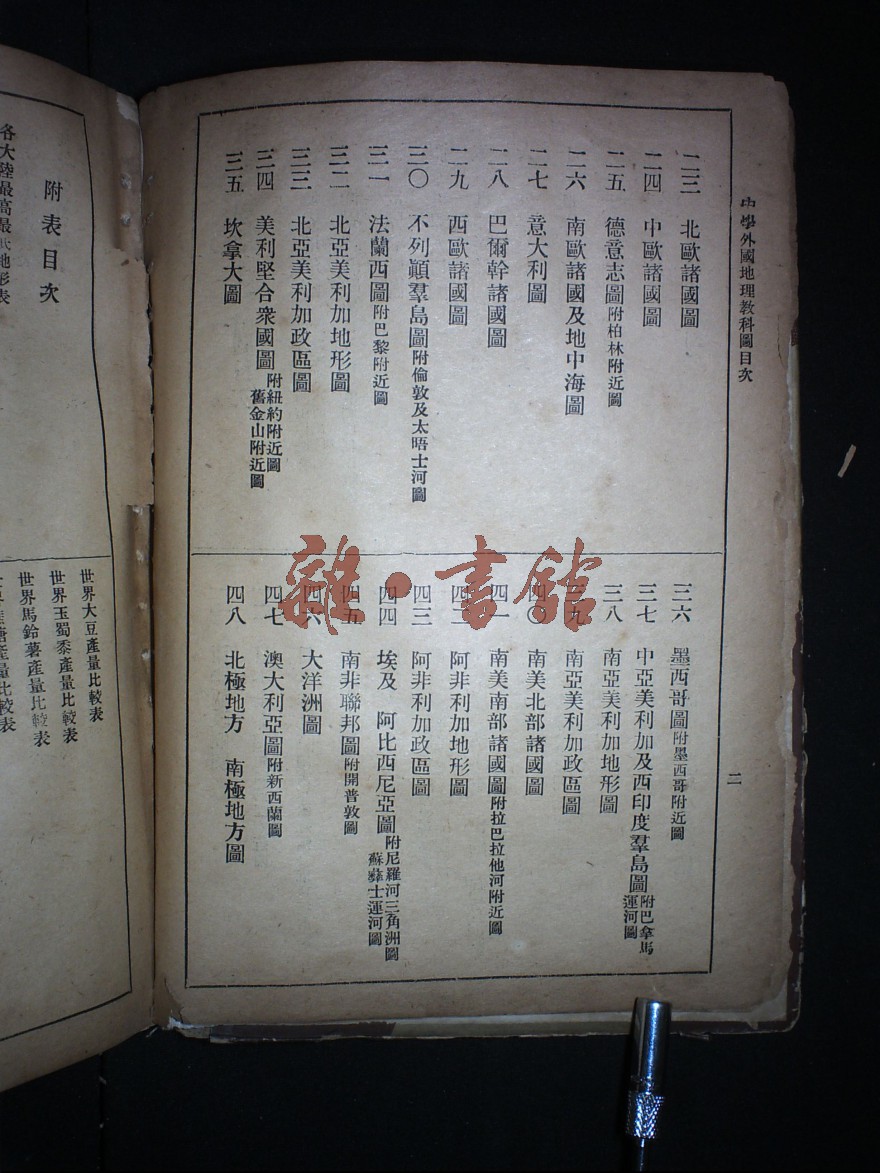 中學外國地理教科圖目次
二
二三 北歐諸國圖
二四 中歐諸國圖
二五 德意志圖附柏林附近圖
二六 南歐諸國及地中海圖
二七 意大利圖
二八 巴爾幹諸國圖
二九 西歐諸國圖
三〇 不列顚羣島圖附倫敦及太晤士河圖
三一 法蘭西圖附巴黎附近圖
三二 北亞美利加地形圖
三三 北亞美利加政區圖
三四 美利堅合衆國圖附紐約附近圖
舊金山附近圖
三五 坎拿大圖
三六 墨西哥圖附墨西哥附近圖
三七 中亞美利加及西印度羣島圖附巴拿馬
運河圖
三八 南亞美利加地形圖
三九 南亞美利加政區圖
四〇 南美北部諸國圖
四一 南美南部諸國圖附拉巴拉他河附近圖
四二 阿非利加地形圖
四三 阿非利加政區圖
四四 埃及 阿比西尼亞圖附尼羅河三角洲圖
蘇彝士運河圖
四五 南非聯邦圖附開普敦圖
四六 大洋洲圖
四七 澳大利亞圖附新西蘭圖
四八 北極地方 南極地方圖
雜·書館
附表目次
各大陸最高最低地形表
世界大豆產量比較表
世界玉蜀黍產量比較表
世界馬鈴薯產量比較表
產量比較表